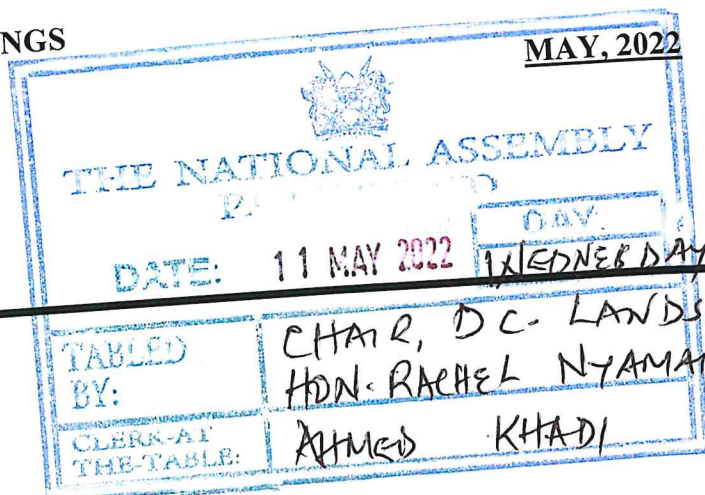 NGS
MAY, 2022
THE NATIONAL ASSEMBLY
DATE: 11 MAY 2022
DAY:
WEDNESDAY
TABLED BY:
CHAIR, D C. LANDS
HON. RACHEL NYAMAI
CLERK-AT THE-TABLE:
AHMED KHADI